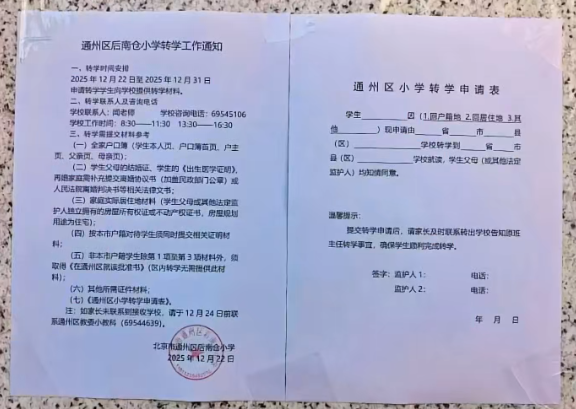 通州区后南仓小学转学工作通知
一、转学时间安排
2025 年 12 月 22 日至 2025 年 12 月 31 日
申请转学学生向学校提供转学材料。
二、转学联系人及咨询电话
学校联系人：闻老师 学校咨询电话：69545106
学校工作时间：8:30——11:30 13:30——16:30
三、转学需提交材料参考
（一）全家户口簿（学生本人页、户口簿首页、户主
页、父亲页、母亲页）；
（二）学生父母的结婚证、学生的《出生医学证明》，
再婚家庭需补充提交离婚协议书（加盖民政部门公章）或
人民法院离婚判决书等相关法律文书；
（三）家庭实际居住地材料（学生父母或其他法定监
护人独立拥有的房屋所有权证或不动产权证书，房屋规划
用途为住宅）；
（四）按本市户籍对待学生须同时提交相关证明材
料；
（五）非本市户籍学生除第 1 项至第 3 项材料外，须
取得《在通州区就读批准书》（区内转学无需提供此材
料）；
（六）其他所需证件材料；
（七）《通州区小学转学申请表》。
注：如家长未联系到接收学校，请于 12 月 24 日前联
系通州区教委小教科（69544639）。
北京市通州区后南仓小学
2025 年 12 月 22 日
通州区小学转学申请表
学生________因（1.回户籍地 2.回居住地 3.其
他________）现申请由____省____市____县
（区）________学校转学到____省____市
县（区）________学校就读，学生父母（或其他法定
监护人）均知情同意。
温馨提示：
提交转学申请后，请家长及时联系转出学校告知原班
主任转学事宜，确保学生顺利完成转学。
签字：监护人 1： 电话：
监护人 2： 电话：
年 月 日